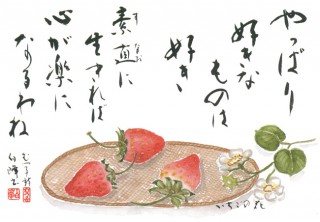 やっぱり
好きな
ものは
好き
素直に
すなお
生きれば
心が楽に
なるわね
いちごの花